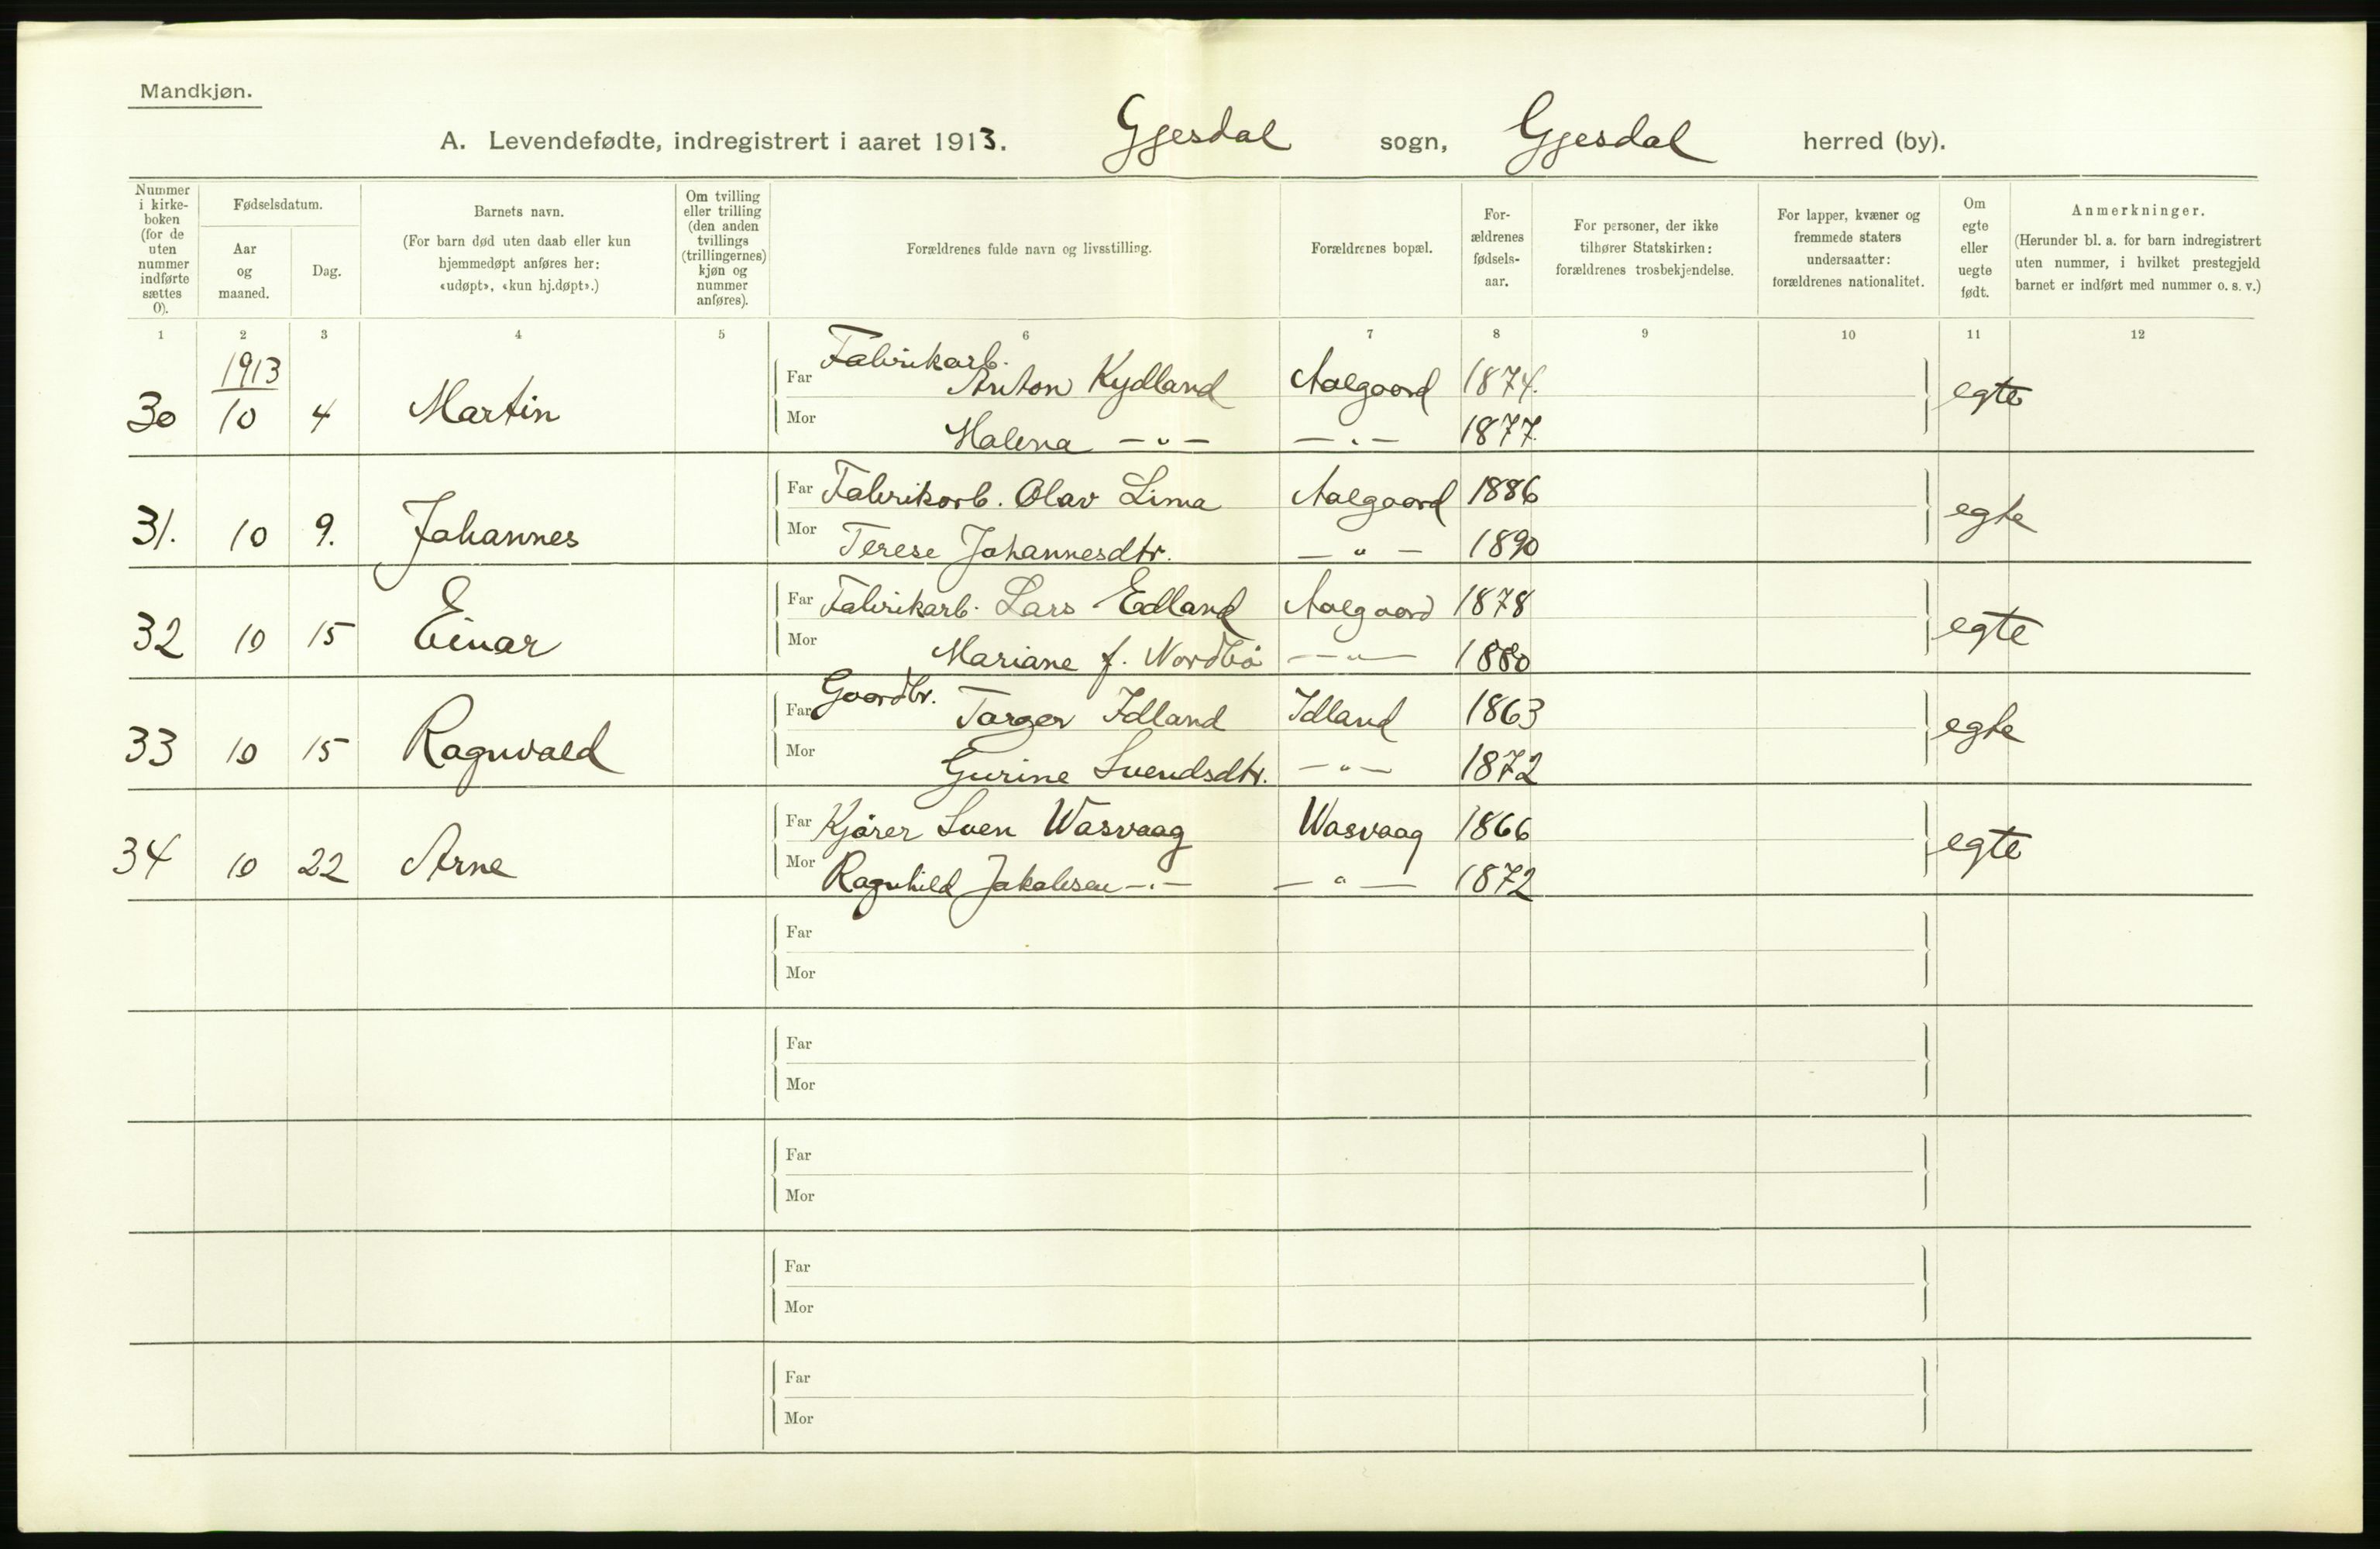 Mandkjøn.
A. Levendefødte, indregistrert i aaret 1913. Gjesdal sogn, Gjesdal herred (by).
Nummer i kirke-boken (for de uten nummer indførte sættes 0).
Fødselsdatum.
Aar og maaned.
Dag.
Barnets navn.
(For barn død uten daab eller kun hjemmedøpt anføres her: «udøpt», «kun hj.døpt».)
Om tvilling eller trilling (den anden tvillings (trillingernes) kjøn og nummer anføres).
Forældrenes fulde navn og livsstilling.
Forældrenes bopæl.
For-ældrenes fødsels-aar.
For personer, der ikke tilhører Statskirken: forældrenes trosbekjendelse.
For lapper, kvæner og fremmede staters undersaatter: forældrenes nationalitet.
Om egte eller uegte født.
Anmerkninger.
(Herunder bl. a. for barn indregistrert uten nummer, i hvilket prestegjeld barnet er indført med nummer o. s. v.)
1 2 3 4 5 6 7 8 9 10 11 12
1913
30 10 4 Martin Far Fabrikarb. Anton Kydland Aalgaard 1874. egte
Mor Malena — " — — " — 1877.
31. 10 9. Johannes Far Fabrikarb. Olav Lima Aalgaard 1886 egte
Mor Terese Johannesdtr. — " — 1890
32 10 15 Einar Far Fabrikarb. Lars Edland Aalgaard 1878 egte
Mor Mariane f. Nordbö — " — 1880
33 10 15 Ragnvald Far Gaardbr. Torger Idland Idland 1863 egte
Mor Gurine Svendsdtr. — " — 1872
34 10 22 Arne Far Kjörer Sven Wasvaag Wasvaag 1866 egte
Mor Ragnhild Jakobsen — " — — " — 1872
Far
Mor
Far
Mor
Far
Mor
Far
Mor
Far
Mor